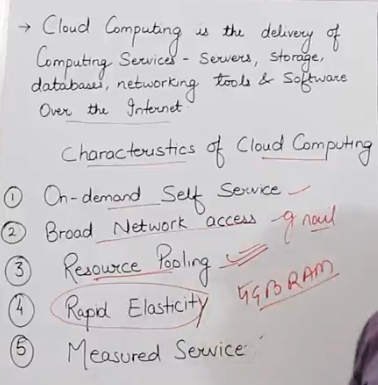 → Cloud Computing is the delivery of
Computing Services - Servers, storage,
databases, networking tools & Software
Over the Internet
Characteristics of Cloud Computing
① On-demand Self Service
② Broad Network access
③ Resource Pooling
④ Rapid Elasticity
RAM
⑤ Measured Service